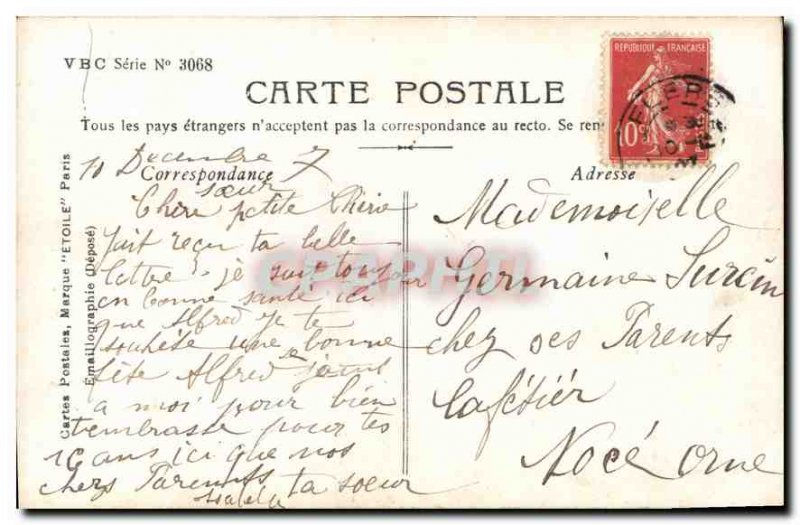 VBC Série Nº 3068
CARTE POSTALE
RÉPUBLIQUE FRANÇAISE
10c
Tous les pays étrangers n'acceptent pas la correspondance au recto. Se ren
Cartes Postales, Marque "ÉTOILE" Paris
Emaillographie (Déposé)
Correspondance
Adresse
10 Decembre 7
sœur
Chère petite Chérie
jait reçu ta belle
lettre je suit toujour
en bonne santé ici
que Alfred Je te
souhête une bonne
fête Alfred se joint
a moi pour bien
tembrasse pour tes
10 ans ici que nos
chers Parents ta soeur
Mademoiselle
Germaine Surcin
chez ses Parents
Cafétiér
Nocé Orne
CPAPHIL